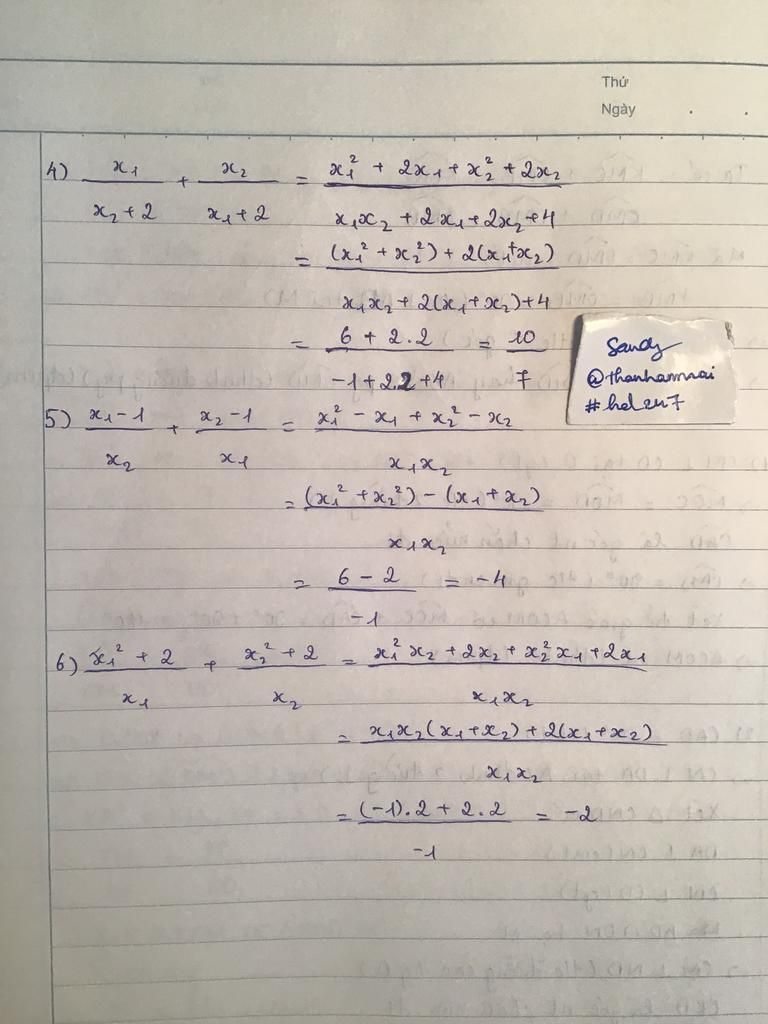 Thứ
Ngày . .
4) x₁/(x₂ + 2) + x₂/(x₁ + 2) = (x₁² + 2x₁ + x₂² + 2x₂)/(x₁x₂ + 2x₁ + 2x₂ + 4)
= ((x₁² + x₂²) + 2(x₁ + x₂))/(x₁x₂ + 2(x₁ + x₂) + 4)
= (6 + 2.2)/(-1 + 2.2 + 4) = 10/7
Sandy
@thanhamnai
#hd247
5) (x₁ - 1)/x₂ + (x₂ - 1)/x₁ = (x₁² - x₁ + x₂² - x₂)/(x₁x₂)
= ((x₁² + x₂²) - (x₁ + x₂))/(x₁x₂)
= (6 - 2)/(-1) = -4
6) (x₁² + 2)/x₁ + (x₂² + 2)/x₂ = (x₁²x₂ + 2x₂ + x₂²x₁ + 2x₁)/(x₁x₂)
= (x₁x₂(x₁ + x₂) + 2(x₁ + x₂))/(x₁x₂)
= ((-1).2 + 2.2)/(-1) = -2